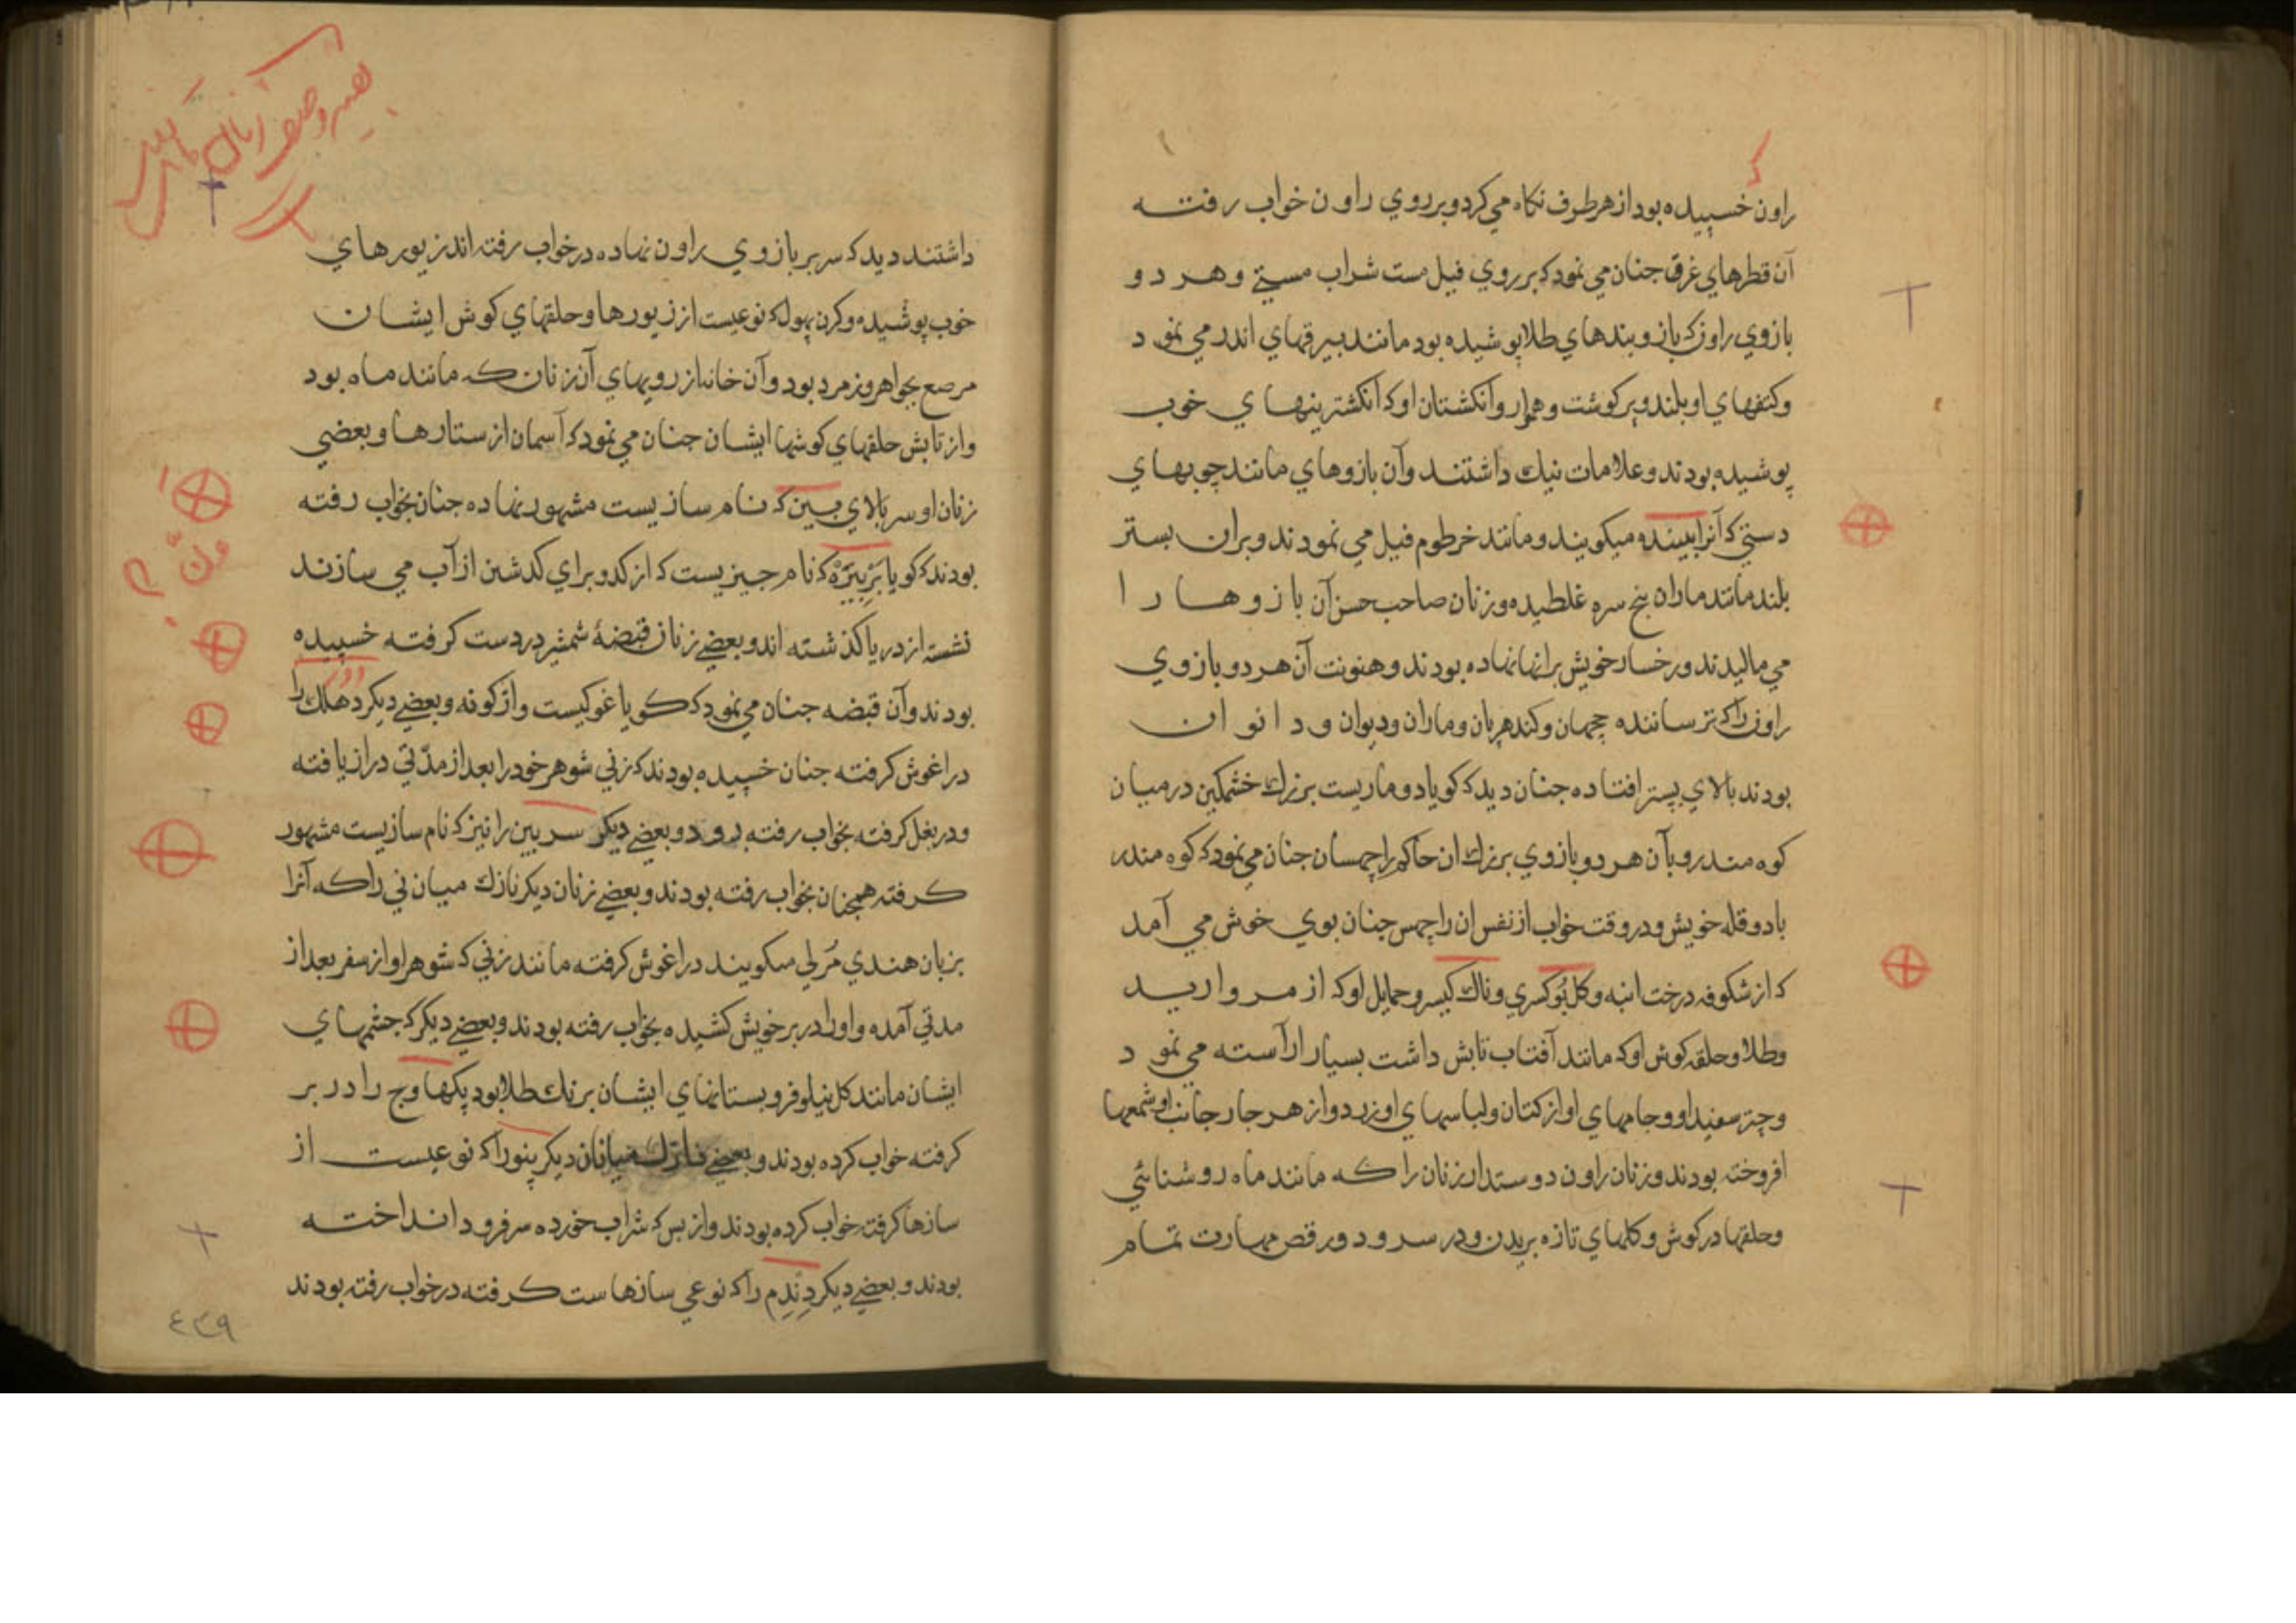 راون خسپیده بود از هر طرف نکاه می کرد و بر روی راون خواب رفته
آن قطرهای غرق جنان می نمود که بر روی فیل مست شراب مستی و هر دو
بازوی راون که بازوبندهای طلا پوشیده بود مانند بیرقهای اندر می نمود
و کتفهای او بلند و پر کوشت و هموار و انکشتان او که انکشترینهای خوب
پوشیده بودند و علامات نیك داشتند و آن بازوهای مانند چوبهای
دستی که آنرا بینده میکویند و مانند خرطوم فیل می نمودند و بران بستر
بلند مانند ماران پنج سره غلطیده و زنان صاحب حسن آن بازوها را
می مالیدند و رخسار خویش برانها نهاده بودند و هنونت آن هر دو بازوی
راون را که ترساننده ججهان و کندهربان و ماران و دیوان و دانوان
بودند بالای بستر افتاده جنان دید که کویا دو ماریست بزرك خشمکین در میان
کوه مندر و بآن هر دو بازوی بزرك ان حاکم راچهسان جنان می نمود که کوه مندر
با دو قله خویش و در وقت خواب از نفس ان راچهس جنان بوی خوش می آمد
که از شکوفه درخت انبه و کل بُوکسری و ناك کیسر و حمایل او که از مروارید
و طلا و حلقه کوش او که مانند آفتاب تابش داشت بسیار آراسته می نمود
و چتر سفید او و جامهای او از کتان و لباسهای او زرد و از هر جار جانب او شمعها
افروخته بودند و زنان راون دوستدار زنان را که مانند ماه روشنائی
و حلقها در کوش و کلهای تازه بریدن و در سرود و رقص مهارت تمام
داشتند دید که سر بر بازوی راون نهاده در خواب رفته اند زیورهای
خوب پوشیده و کرن پهول که نوعیست از زیورها و حلقهای کوش ایشان
مرصع بجواهر و زمرد بود و آن خانه از رویهای آن زنان که مانند ماه بود
و از تابش حلقهای کوشها ایشان جنان می نمود که آسمان از ستارها و بعضی
زنان او سر بالای بین که نام سازیست مشهور نهاده جنان بخواب رفته
بودند که کویا بر بیره که نام جیزیست که از کدو برای کدشتن از آب می سازند
نشسته از دریا کذشته اند و بعضی زنان قبضهٔ شمشیر در دست کرفته خسپیده
بودند و آن قبضه جنان می نمود که کویا غوکیست واژکونه و بعضی دیکر دهلك را
در اغوش کرفته جنان خسپیده بودند که زنی شوهر خود را بعد از مدّتی دراز یافته
و در بغل کرفته بخواب رفته بود و بعضی دیکر سر بین را نیز که نام سازیست مشهور
کرفته همجنان بخواب رفته بودند و بعضی زنان دیکر نازك میان نی را که آنرا
بزبان هندی مُرلی میکویند در اغوش کرفته مانند زنی که شوهر او از سفر بعد از
مدتی آمده و او را در بر خویش کشیده بخواب رفته بودند و بعضی دیکر که جشمهای
ایشان مانند کل نیلوفر و پستانهای ایشان برنك طلا بود پکهاوج را در بر
کرفته خواب کرده بودند و بعضی نازك میانان دیکر پنو را که نوعیست از
سازها کرفته خواب کرده بودند و از بس که شراب خورده سر فرود انداخته
بودند و بعضی دیکر دِندِم را که نوعی سازهاست کرفته در خواب رفته بودند
٤٣٩